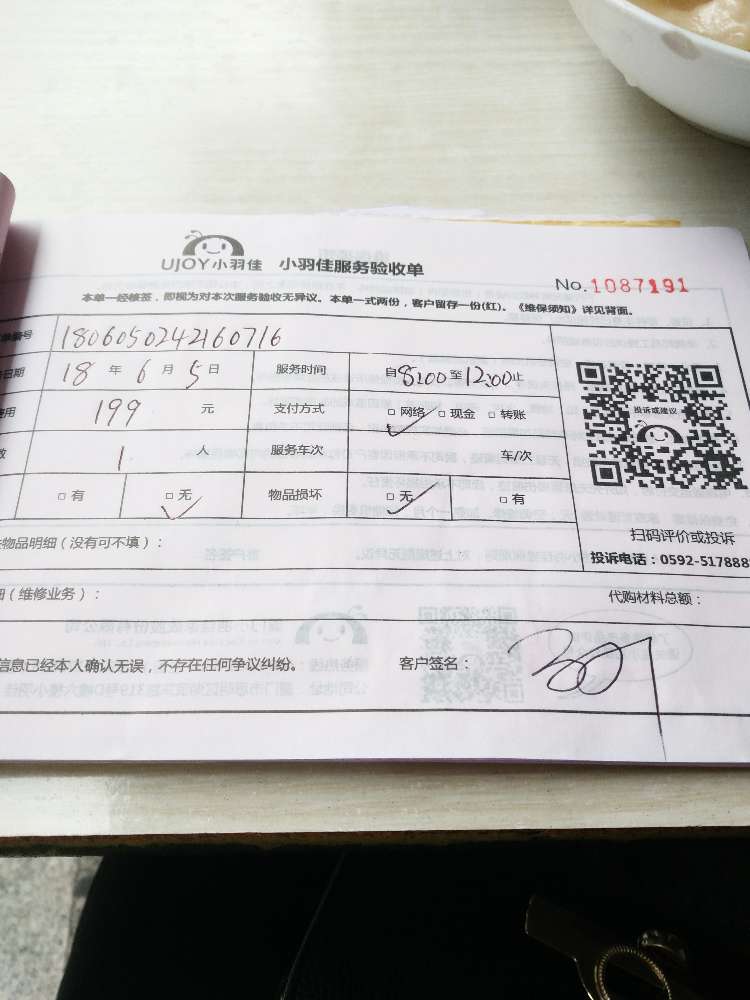 UJOY小羽佳 小羽佳服务验收单
No.1087191
本单一经核签，即视为对本次服务验收无异议。本单一式两份，客户留存一份(红)。《维保须知》详见背面。
单编号 1806050242160716
日期 18 年 6 月 5 日 服务时间 自8:00至12:00止
费用 199 元 支付方式 □网络 □现金 □转账
数 1 人 服务车次 车/次
□有 □无 物品损坏 □无 □有
投诉或建议
扫码评价或投诉
物品明细（没有可不填）：
投诉电话：0592-517888
细（维修业务）： 代购材料总额：
信息已经本人确认无误，不存在任何争议纠纷。 客户签名：